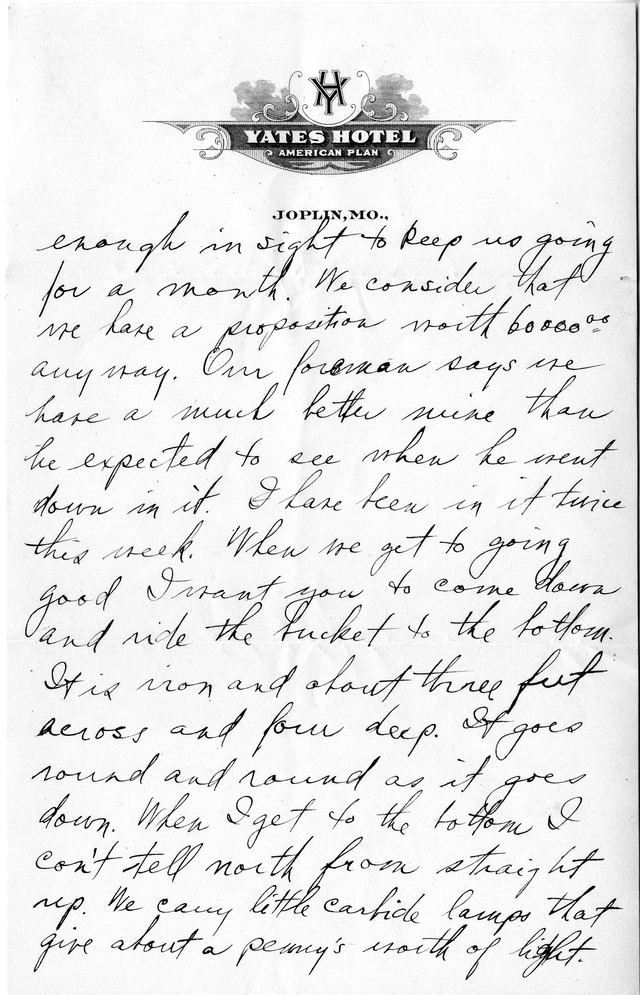 YH
YATES HOTEL
AMERICAN PLAN
JOPLIN, MO.,
enough in sight to keep us going
for a month. We consider that
we have a proposition worth 60000⁰⁰
anyway. Our foreman says we
have a much better mine than
he expected to see when he went
down in it. I have been in it twice
this week. When we get to going
good I want you to come down
and ride the bucket to the bottom.
It is iron and about three feet
across and four deep. It goes
round and round as it goes
down. When I get to the bottom I
can't tell north from straight
up. We carry little carbide lamps that
give about a penny's worth of light.